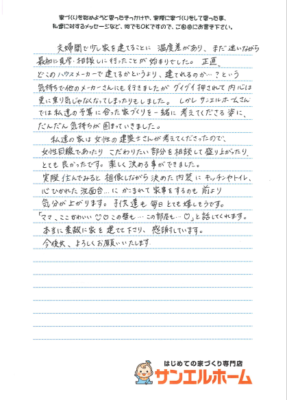 家づくりを始めようと思ったきっかけや、実際に家づくりをして思った事、
私達に対するメッセージなど、何でもOKですので、ご自由にお書き下さい。
夫婦間で少し家を建てることに 温度差があり、まだ迷いながら
最初に見学・相談しに行ったことが始まりでした。正直、
どこのハウスメーカーで建てるかというより、建てれるのか…?という
気持ちで他のメーカーさんにも行きましたが グイグイ押されて内心は
更に乗り気じゃなくなってしまったりもしました。しかし サンエルホームさん
では私達の予算に合った家づくりを一緒に考えてくださる姿に、
だんだん気持ちが固まっていきました。
私達の家は女性の建築士さんが考えてくださったので、
女性目線であったり こだわりたい部分を相談して盛り上がったり、
とても良かったです。楽しく決める事ができました。
実際住んでみると 想像しながら決めた内装にキッチンやトイレ、
心ひかれた洗面台…に かこまれて家事をするのも前より
気分が上がります。子供達も毎日とても嬉しそうです。
「ママ、ここかわいい♡♡この壁も…この部屋も…♡」と話してくれます。
本当に素敵に家を建てて下さり、感謝しています。
今後とも、よろしくお願いいたします
はじめての家づくり専門店
サンエルホーム